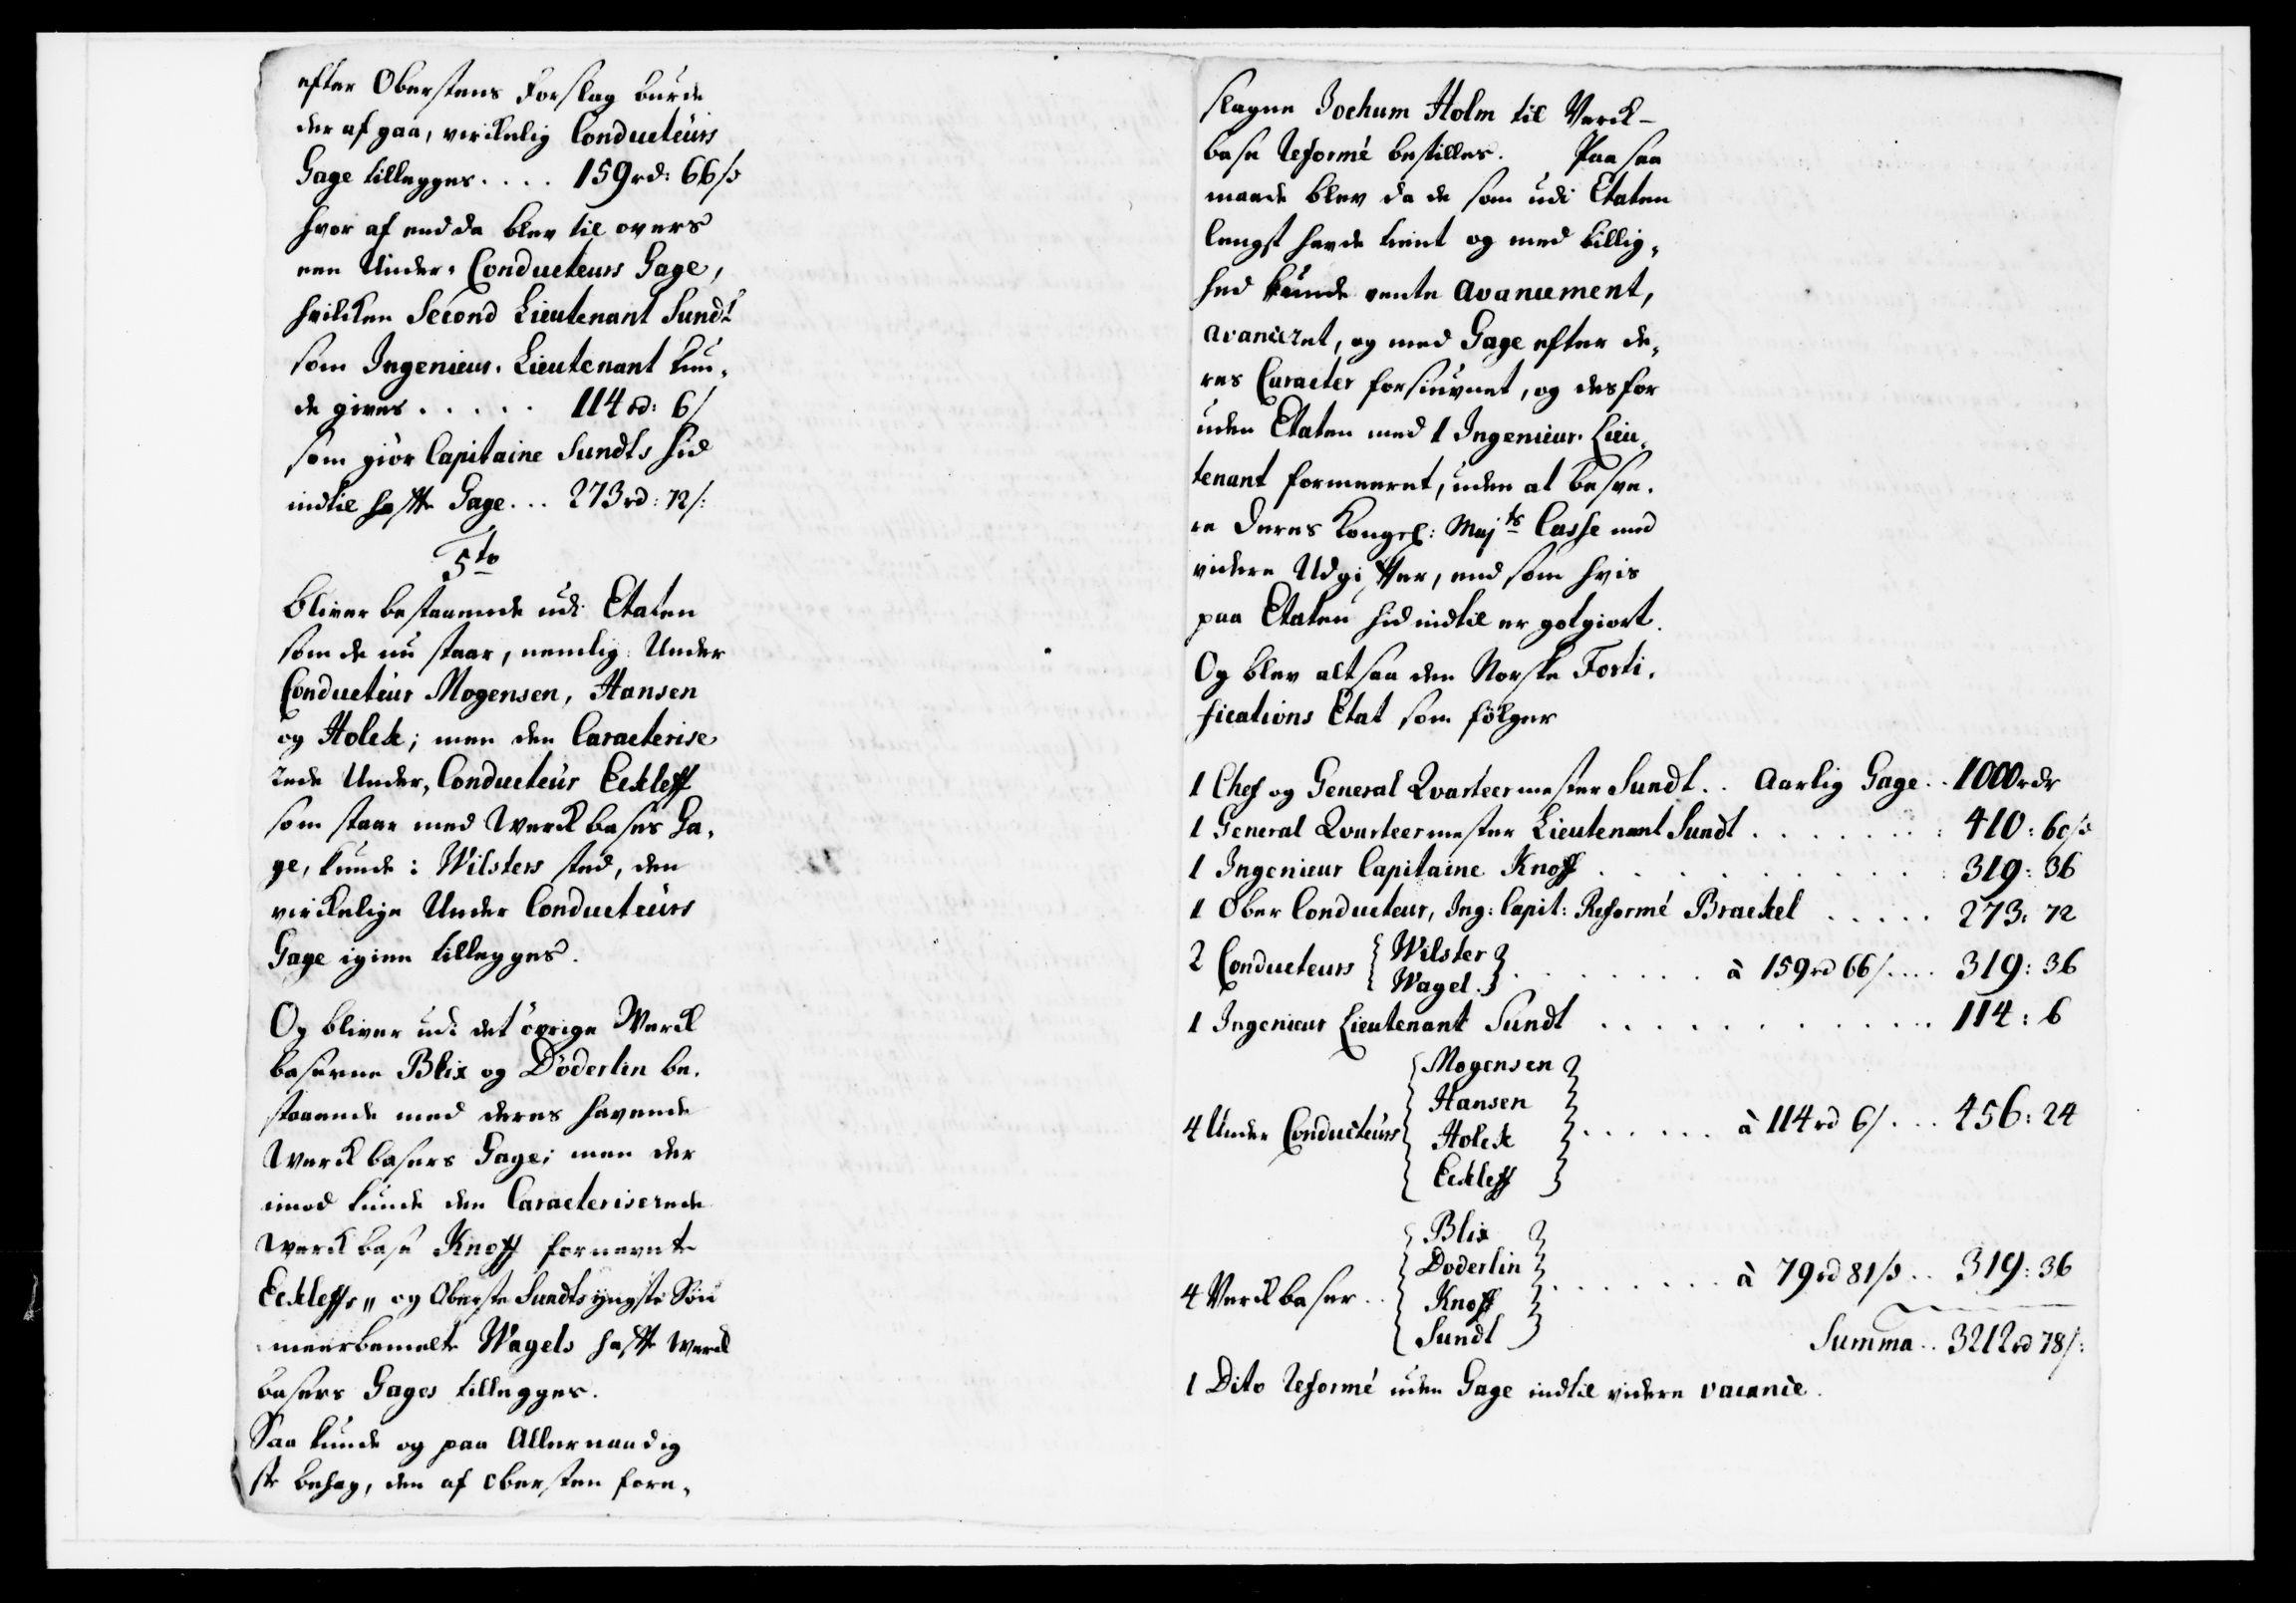 efter Oberstens Forslag burde
der af gaa, virkelig Conducteurs
Gage tillegges.... 159rd: 66s
hvor af endda blev til overs
een Under-Conducteurs Gage,
hvilcken Second Lieutenant Sundt
som Ingenieur-Lieutenant kun-
de gives..... 114rd: 6s
som giör Capitaine Sundts hid
indtil hafte Gage... 273rd: 72s:
5to
Bliver bestaaende udi Etaten
som de nu staar, nemlig Under
Conducteur Mogensen, Hansen
og Holck; men den Caracterise-
rede Under-Conducteur Eckleff
som staar med Werckbases Ga-
ge, kunde i Wilsters sted, den
virckelige Under Conducteurs
Gage igien tillegges.
Og bliver udi det övrige Werck
baserne Blix og Döderlin be-
staaende med deres havende
Werckbasers Gage; men der
imod kunde den Caracteriserede
Werckbase Knoff fornevnte
Eckleffs,, og Oberste Sundts yngste Sön
meerbemelte Wagels hafte Werck
basers Gages tillegges.
Saa kunde og paa Allernaadig
ste behag, den af Obersten fore-
slagne Jochum Holm til Verck-
base Reformé bestilles. Paa saa
maade blev da de som udi Etaten
lengst havde tient og med billig-
hed kunde vente avancement,
avanceret, og med Gage efter de-
res Caracter forsiunet, og desfor
uden Etaten med 1 Ingenieur-Lieu-
tenant formeeret, uden at besve-
re Deres Kongel: Majts Casse med
videre Udgifter, end som hvis
paa Etaten hid indtil er gotgiort.
Og blev altsaa den Norske Forti-
fications Etat som fölger
1 Chef og General Qvarteermester Sundt.. Aarlig Gage.. 1000rdr
1 General Qvarteermester Lieutenant Sundt....... 410: 60s
1 Ingenieur Capitaine Knoff.......... 319: 36
1 Ober Conducteur, Ing: Capit: Reformé Brackel..... 273: 72
2 Conducteurs { Wilster
Wagel. }....... à 159rd 66s.... 319: 36
1 Ingenieur Lieutenant Sundt............ 114: 6
4 Under Conducteurs { Mogensen
Hansen
Holck
Eckleff }...... à 114rd 6s... 456: 24
4 Verckbaser.. { Blix
Doderlin
Knoff
Sundt }....... à 79rd 81s.. 319: 36
Summa.. 3212rd 78s:
1 Dito Reformé uden Gage indtil videre vacance.